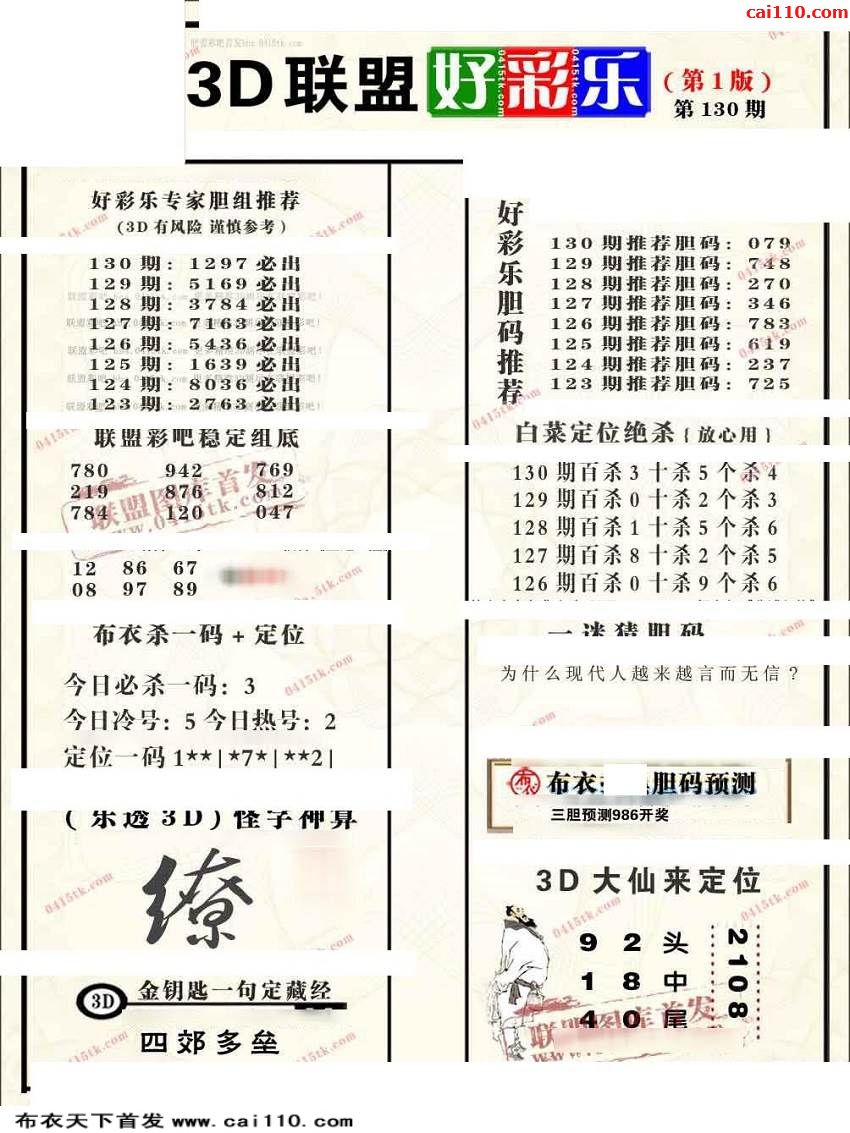 cai110.com
3D联盟好彩乐
(第1版)
第130期
好彩乐专家胆组推荐
(3D有风险 谨慎参考)
130期: 1297必出
129期: 5169必出
128期: 3784必出
127期: 7163必出
126期: 5436必出
125期: 1639必出
124期: 8036必出
123期: 2763必出
联盟彩吧稳定组底
780 942 769
219 876 812
784 120 047
12 86 67
08 97 89
布衣杀一码+定位
今日必杀一码: 3
今日冷号: 5 今日热号: 2
定位一码 1**|*7*|**2|
(乐透3D)怪字神算
缭
3D 金钥匙一句定藏经
四郊多垒
好彩乐胆码推荐
130期推荐胆码: 079
129期推荐胆码: 748
128期推荐胆码: 270
127期推荐胆码: 346
126期推荐胆码: 783
125期推荐胆码: 619
124期推荐胆码: 237
123期推荐胆码: 725
白菜定位绝杀{放心用}
130期百杀3十杀5个杀4
129期百杀0十杀2个杀3
128期百杀1十杀5个杀6
127期百杀8十杀2个杀5
126期百杀0十杀9个杀6
一谜猜胆码
为什么现代人越来越言而无信?
布衣 胆码预测
三胆预测986开奖
3D大仙来定位
9 2 头
1 8 中
4 0 尾
2108
布衣天下首发 www.cai110.com